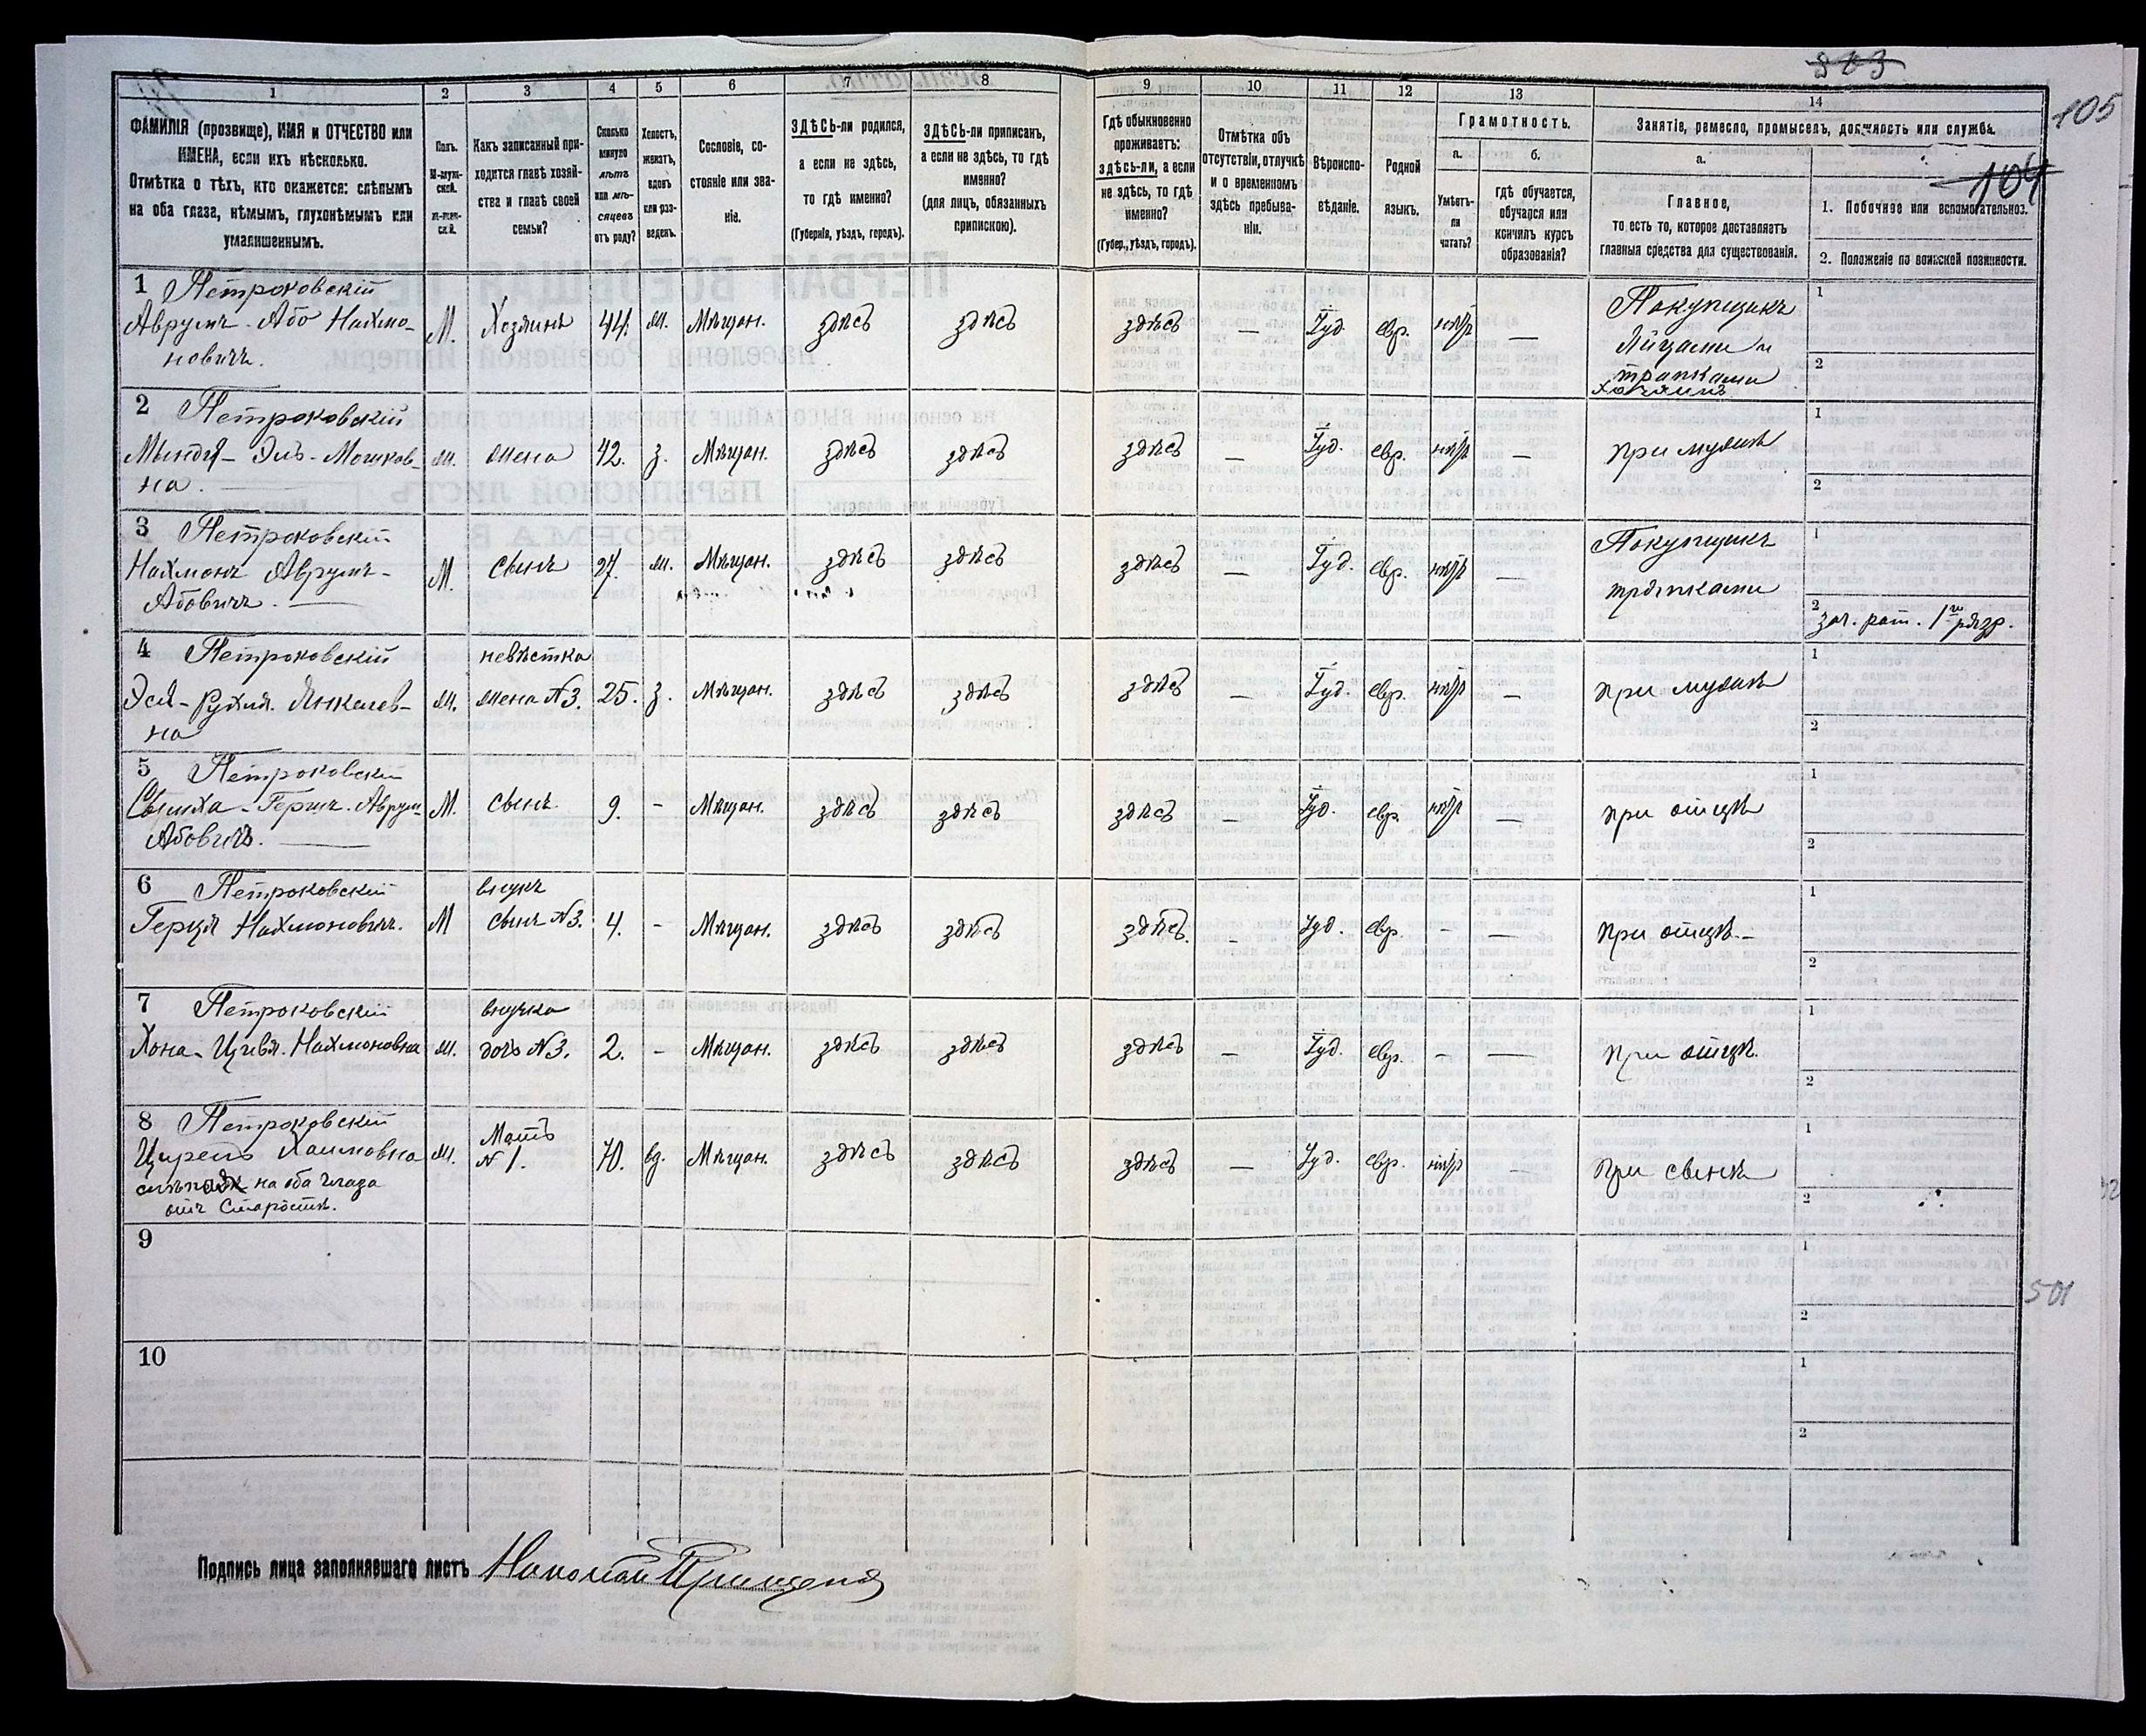 303
105
104
1 2 3 4 5 6 7 8 9 10 11 12 13 14
ФАМИЛІЯ (прозвище), ИМЯ и ОТЧЕСТВО или
ИМЕНА, если ихъ нѣсколько.
Отмѣтка о тѣхъ, кто окажется: слѣпымъ
на оба глаза, нѣмымъ, глухонѣмымъ или
умалишеннымъ.
Полъ.
М-муж-
ской.
ж-жен-
скій.
Какъ записанный при-
ходится главѣ хозяй-
ства и главѣ своей
семьи?
Сколько
минуло
лѣтъ
или мѣ-
сяцевъ
отъ роду?
Холостъ,
женатъ,
вдовъ
или раз-
веденъ.
Сословіе, со-
стояніе или зва-
ніе.
ЗДѢСЬ-ли родился,
а если не здѣсь,
то гдѣ именно?
(Губернія, уѣздъ, городъ).
ЗДѢСЬ-ли приписанъ,
а если не здѣсь, то гдѣ
именно?
(для лицъ, обязанныхъ
припискою).
Гдѣ обыкновенно
проживаетъ:
здѣсь-ли, а если
не здѣсь, то гдѣ
именно?
(Губер., уѣздъ, городъ).
Отмѣтка объ
отсутствіи, отлучкѣ
и о временномъ
здѣсь пребыва-
ніи.
Вѣроиспо-
вѣданіе.
Родной
языкъ.
Грамотность.
а.
Умѣетъ-
ли
читать?
б.
гдѣ обучается,
обучался или
кончилъ курсъ
образованія?
Занятіе, ремесло, промыселъ, должность или служба.
а.
Главное,
то есть то, которое доставляетъ
главныя средства для существованія.
1. Побочное или вспомогательное.
2. Положеніе по воинской повинности.
1 Петроковскій
Аврумъ-Або Нахмо-
новичъ.
М. Хозяинъ 44. ж. Мѣщан. здѣсь здѣсь здѣсь — Іуд. евр. нѣтъ —
Покупщикъ
Яйцами и
тряпками
хозяинъ
1
2
2 Петроковскій
Мындля-Эль-Мошков-
на. —
ж. жена 42. з. Мѣщан. здѣсь здѣсь здѣсь — Іуд. евр. нѣтъ — при мужѣ
1
2
3 Петроковскій
Нахмонъ Аврумъ-
Абовичъ. —
М. сынъ 27. ж. Мѣщан. здѣсь здѣсь здѣсь — Іуд. евр. нѣтъ —
Покупщикъ
тряпками
1
2 зач. рат. 1го разр.
4 Петроковскій
Эся-Рухля Янкелев-
на
ж. невѣстка
жена №3. 25. з. Мѣщан. здѣсь здѣсь здѣсь — Іуд. евр. нѣтъ — при мужѣ
1
2
5 Петроковскій
Сымха-Герцъ-Аврум-
Абовичъ. —
М. сынъ 9. - Мѣщан. здѣсь здѣсь здѣсь — Іуд. евр. нѣтъ — при отцѣ
1
2
6 Петроковскій
Герцля Нахмоновичъ.
М внукъ
сынъ №3. 4. - Мѣщан. здѣсь здѣсь здѣсь. — Іуд. евр. - — при отцѣ.-
1
2
7 Петроковскій
Хона-Цивля-Нахмоновна
ж. внучка
дочь №3. 2. - Мѣщан. здѣсь здѣсь здѣсь — Іуд. евр. - — при отцѣ.
1
2
8 Петроковскій
Цирель Хаимовна
слѣпая на оба глаза
отъ старости.
ж. Мать
№ 1. 70. вд. Мѣщан. здѣсь здѣсь здѣсь — Іуд. евр. нѣтъ — при сынѣ
1
2
9
1
2
501
10
1
2
Подпись лица заполнявшаго листъ